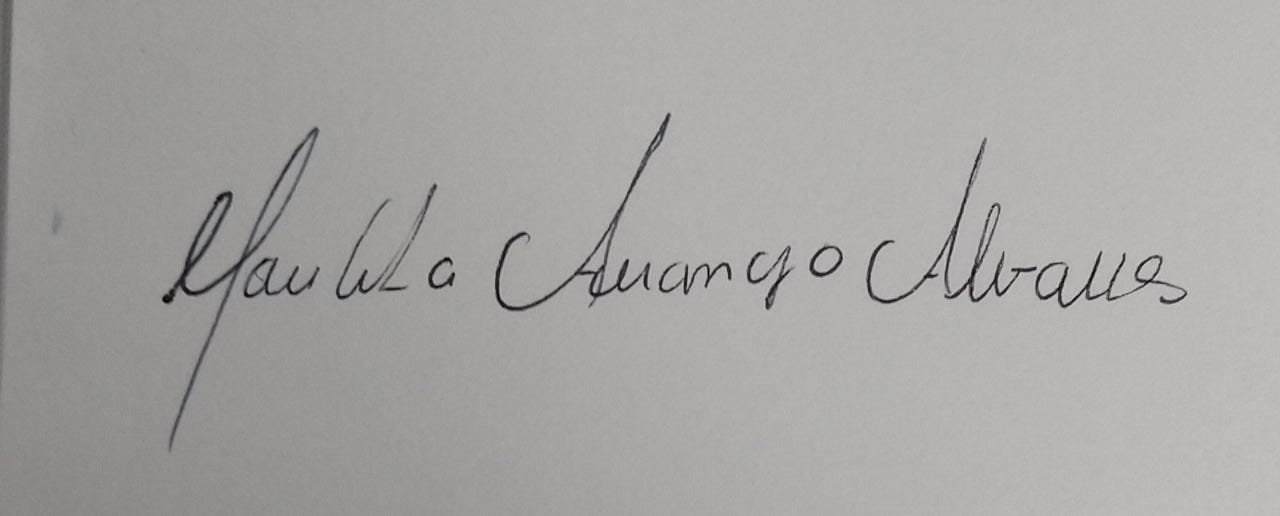 Maritza Arango Alvares